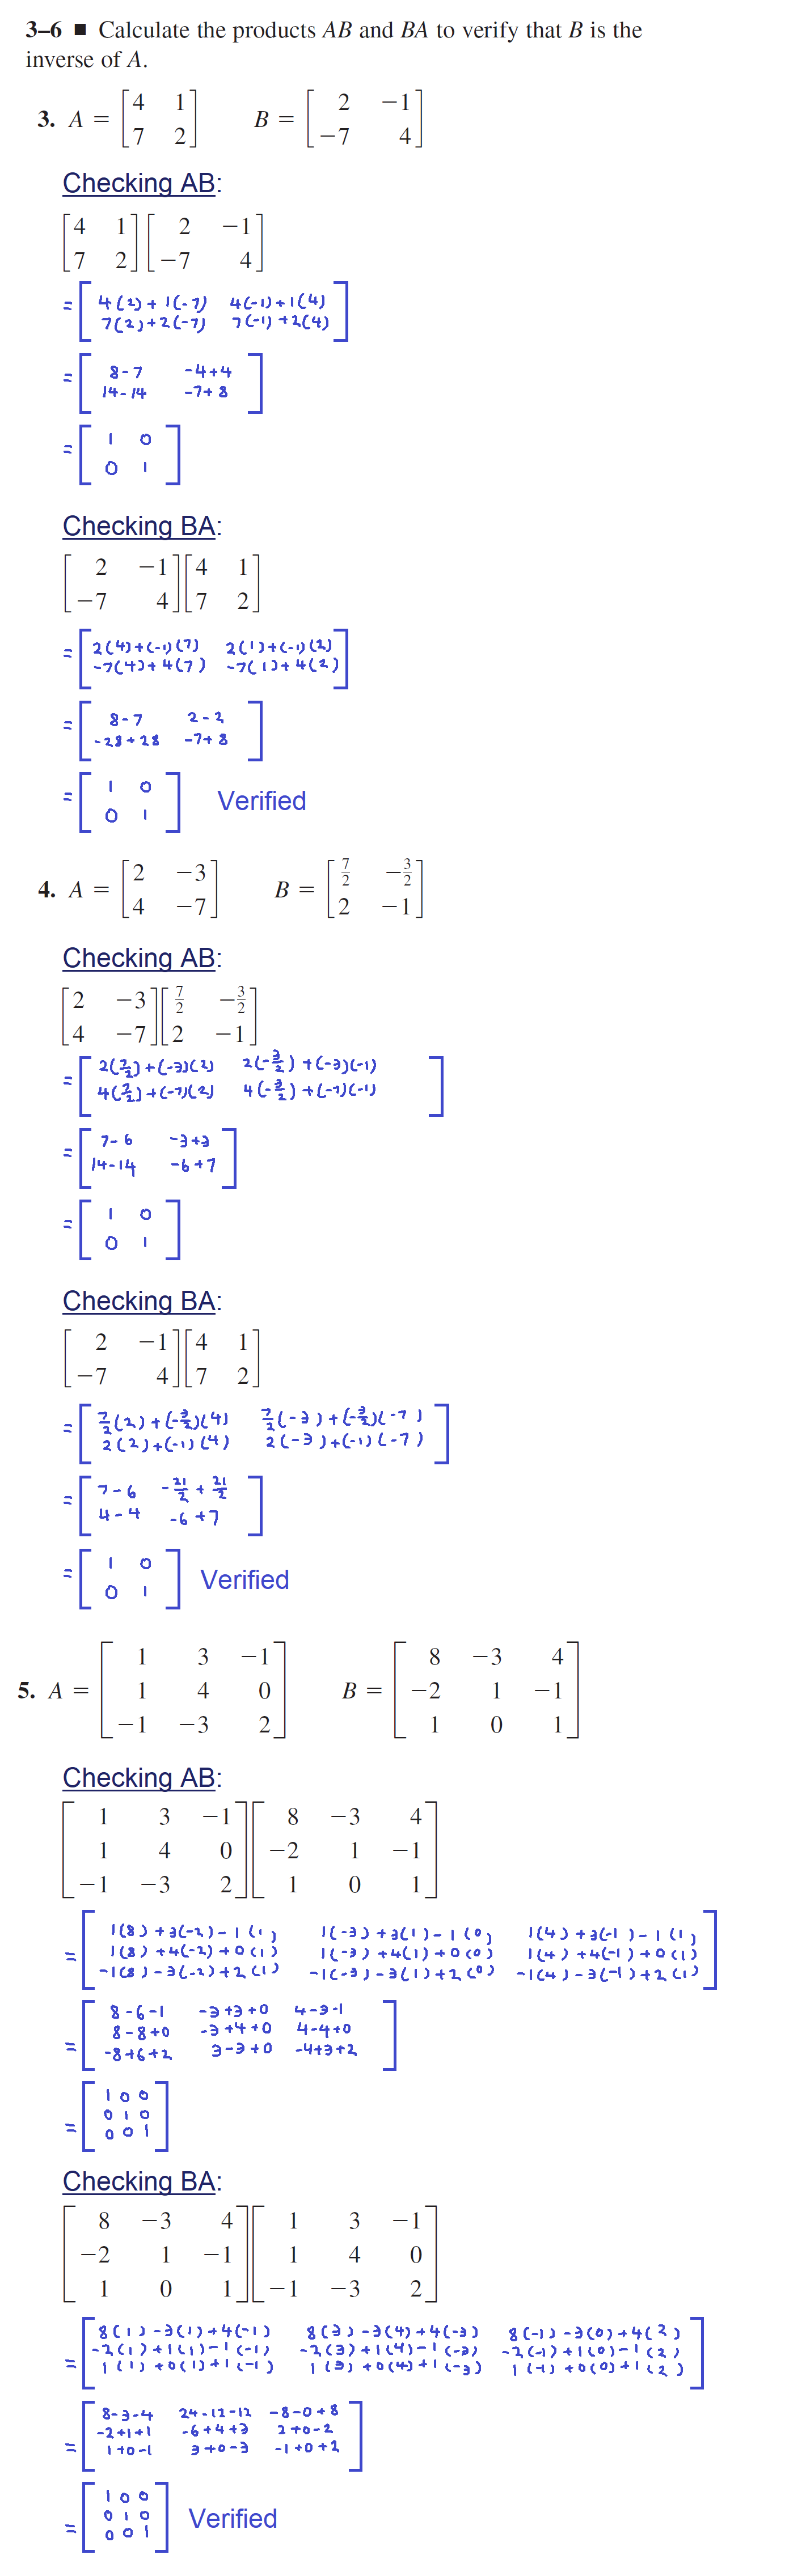 3–6 ■ Calculate the products AB and BA to verify that B is the
inverse of A.
3. A = [4 1; 7 2] B = [2 −1; −7 4]
Checking AB:
[4 1; 7 2][2 −1; −7 4]
= [4(2)+1(-7) 4(-1)+1(4); 7(2)+2(-7) 7(-1)+2(4)]
= [8-7 -4+4; 14-14 -7+8]
= [1 0; 0 1]
Checking BA:
[2 −1; −7 4][4 1; 7 2]
= [2(4)+(-1)(7) 2(1)+(-1)(2); -7(4)+4(7) -7(1)+4(2)]
= [8-7 2-2; -28+28 -7+8]
= [1 0; 0 1] Verified
4. A = [2 −3; 4 −7] B = [7/2 −3/2; 2 −1]
Checking AB:
[2 −3; 4 −7][7/2 −3/2; 2 −1]
= [2(7/2)+(-3)(2) 2(-3/2)+(-3)(-1); 4(7/2)+(-7)(2) 4(-3/2)+(-7)(-1)]
= [7-6 -3+3; 14-14 -6+7]
= [1 0; 0 1]
Checking BA:
[2 −1; −7 4][4 1; 7 2]
= [7/2(2)+(-3/2)(4) 7/2(-3)+(-3/2)(-7); 2(2)+(-1)(4) 2(-3)+(-1)(-7)]
= [7-6 -21/2+21/2; 4-4 -6+7]
= [1 0; 0 1] Verified
5. A = [1 3 −1; 1 4 0; −1 −3 2] B = [8 −3 4; −2 1 −1; 1 0 1]
Checking AB:
[1 3 −1; 1 4 0; −1 −3 2][8 −3 4; −2 1 −1; 1 0 1]
= [1(8)+3(-2)-1(1) 1(-3)+3(1)-1(0) 1(4)+3(-1)-1(1); 1(8)+4(-2)+0(1) 1(-3)+4(1)+0(0) 1(4)+4(-1)+0(1); -1(8)-3(-2)+2(1) -1(-3)-3(1)+2(0) -1(4)-3(-1)+2(1)]
= [8-6-1 -3+3+0 4-3-1; 8-8+0 -3+4+0 4-4+0; -8+6+2 3-3+0 -4+3+2]
= [1 0 0; 0 1 0; 0 0 1]
Checking BA:
[8 −3 4; −2 1 −1; 1 0 1][1 3 −1; 1 4 0; −1 −3 2]
= [8(1)-3(1)+4(-1) 8(3)-3(4)+4(-3) 8(-1)-3(0)+4(2); -2(1)+1(1)-1(-1) -2(3)+1(4)-1(-3) -2(-1)+1(0)-1(2); 1(1)+0(1)+1(-1) 1(3)+0(4)+1(-3) 1(-1)+0(0)+1(2)]
= [8-3-4 24-12-12 -8-0+8; -2+1+1 -6+4+3 2+0-2; 1+0-1 3+0-3 -1+0+2]
= [1 0 0; 0 1 0; 0 0 1] Verified